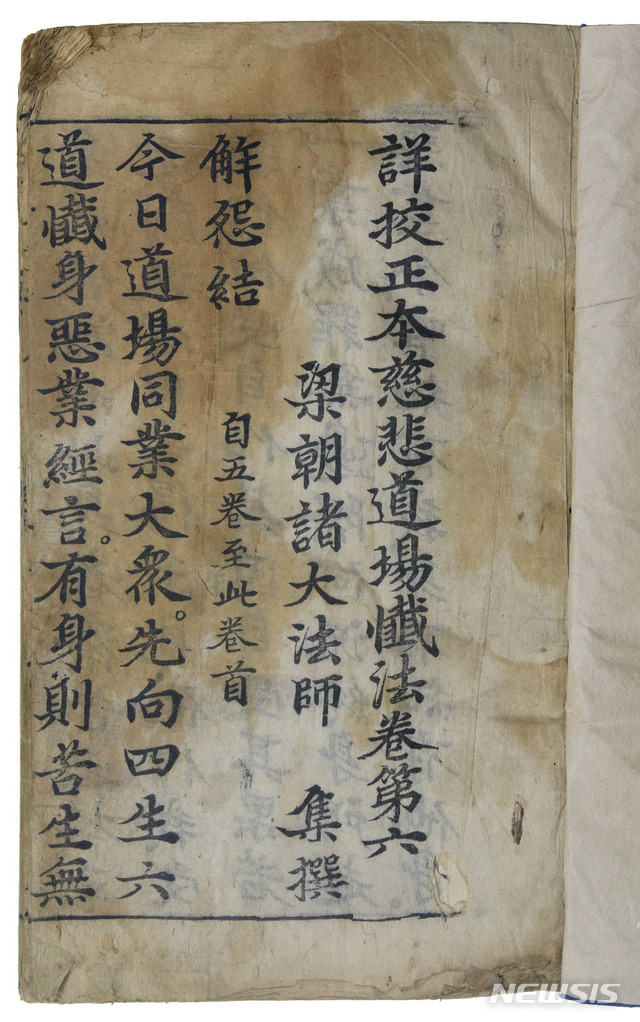 詳挍正本慈悲道場懺法卷第六
梁朝諸大法師 集撰
觧怨結 自五卷至此卷首
今日道場同業大衆。先向四生六
道懺身惡業經言。有身則苦生無
NEWSIS